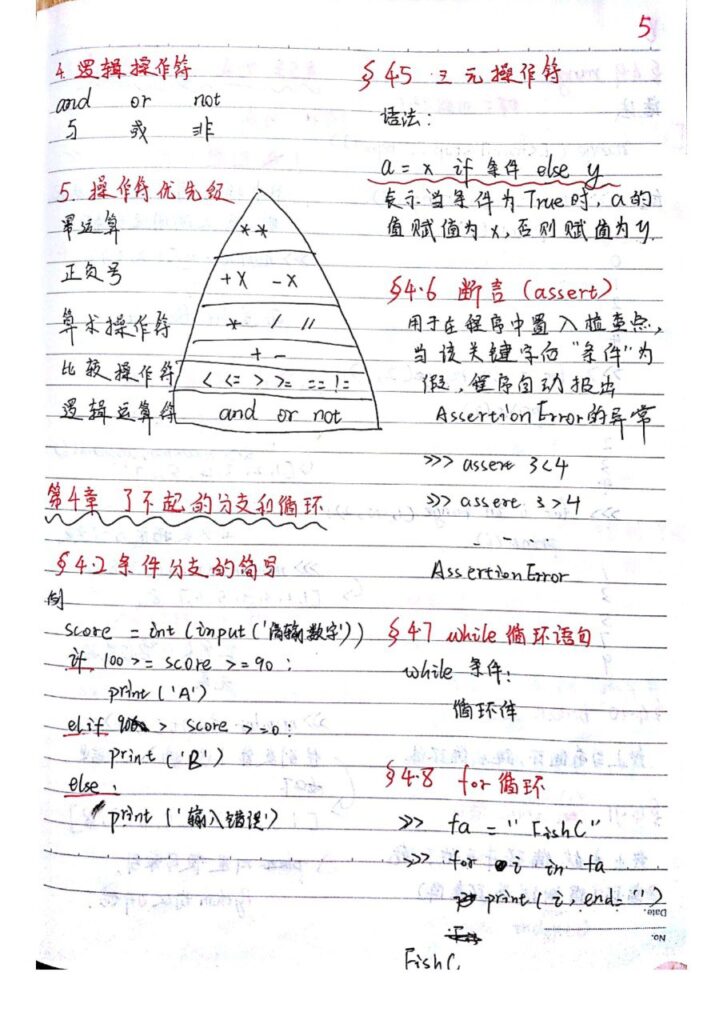 5
4. 逻辑操作符
and or not
与 或 非
5. 操作符优先级
幂运算
**
正负号
+X -X
算术操作符
* / //
+ -
比较操作符
< <= > >= == !=
逻辑运算符
and or not
第4章 了不起的分支和循环
§4.2 条件分支的简写
例
score = int(input('请输数字'))
if 100 >= score >= 90 :
print('A')
elif 90 > score >= 0 :
print('B')
else :
print('输入错误')
§45 三元操作符
语法:
a = x if 条件 else y
表示当条件为True时, a的
值赋值为x, 否则赋值为y.
§4.6 断言 (assert)
用于在程序中置入检查点,
当该关键字后"条件"为
假, 程序自动报出
AssertionError的异常
>>> assert 3<4
>>> assert 3>4
- -
AssertionError
§4.7 while循环语句
while 条件:
循环体
§4.8 for循环
>> fa = "FishC"
>>> for i in fa
print(i, end='')
FishC
Date.
No.